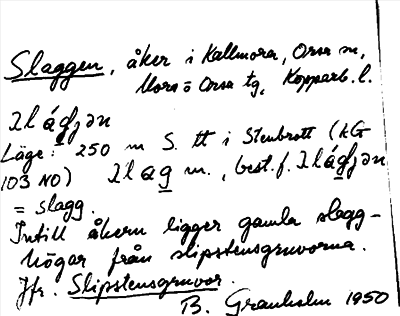 Slaggen, åker i Kallmora, Orsa sn,
Mora o Orsa tg, Kopparb. l.
Läge: 250 m S. tt i Stenbrott (kG
103 NO) m., best. f.
= slagg.
Intill åkern ligger gamla slagg-
högar från slipstensgruvorna.
Jfr. Slipstensgruvor.
B. Granholm 1950